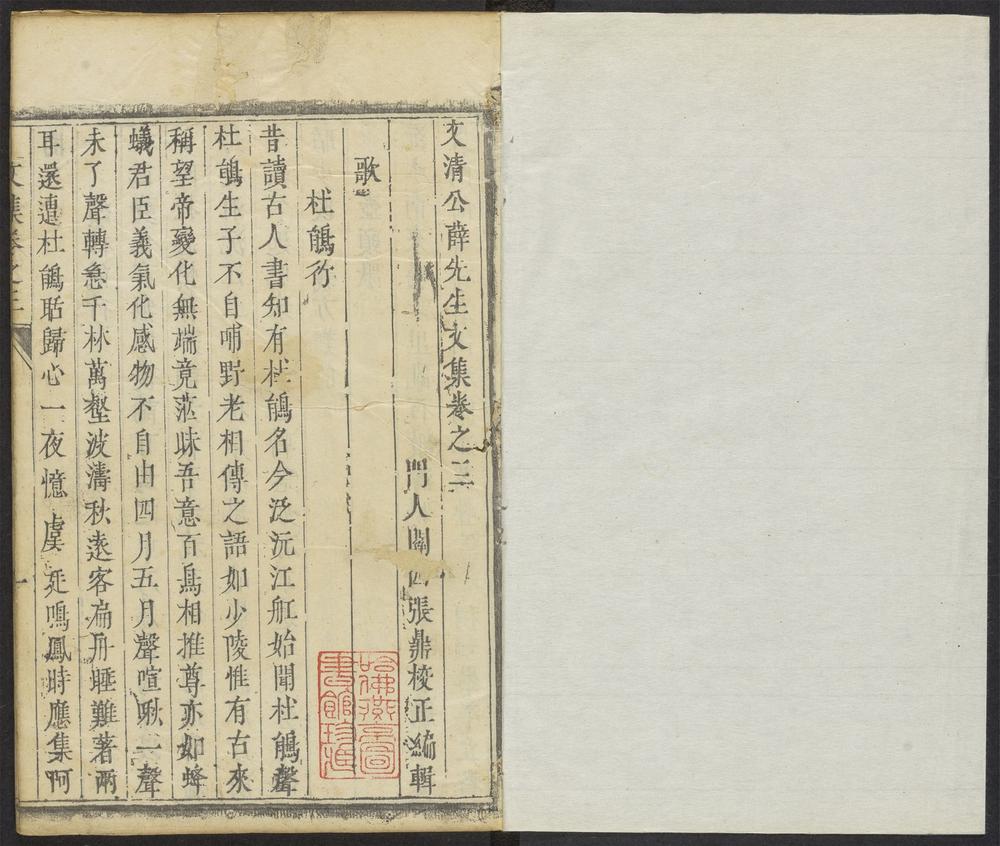 文清公薛先生文集卷之三
門人關西張鼎校正編輯
歌
杜鵑行
昔讀古人書知有杜鵑名今泛沅江舡始聞杜鵑聲
杜鵑生子不自哺野老相傳之語如少陵惟有古來
稱望帝變化無端竟茫昧吾意百鳥相推尊亦如蜂
蟻君臣義氣化感物不自由四月五月聲喧啾一聲
未了聲轉急千林萬壑波濤秋逺客扁舟睡難著兩
耳還連杜鵑聒歸心一夜憶虞廷鳴鳳時應集阿
文集卷之三
一
哈佛燕京圖
書館珍藏